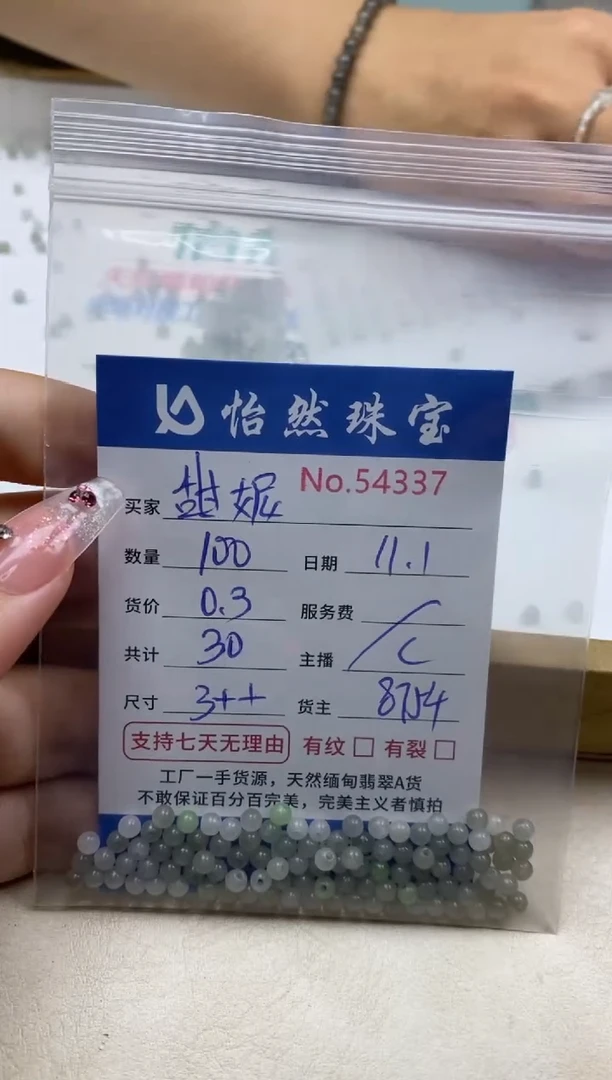 怡然珠宝
No.54337
买家 甜妮
数量 100 日期 11.1
货价 0.3 服务费 /
共计 30 主播 C
尺寸 3++ 货主 8754
支持七天无理由 有纹 □ 有裂 □
工厂一手货源，天然缅甸翡翠A货
不敢保证百分百完美，完美主义者慎拍